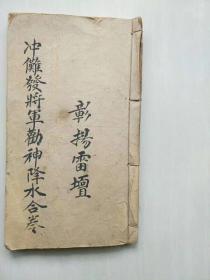 彰揚雷壇
冲儺發將軍勸神降水合卷